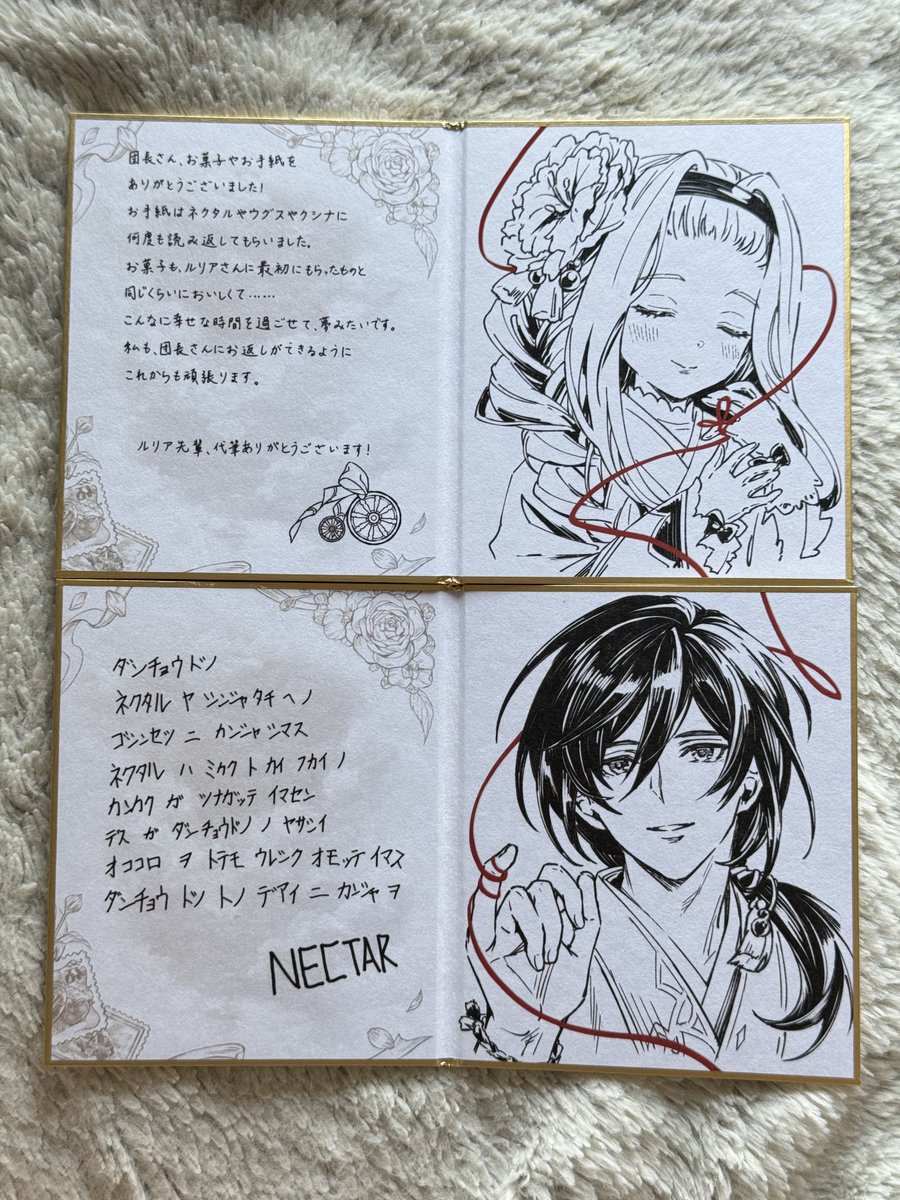 団長さん、お菓子やお手紙を
ありがとうございました!
お手紙はネクタルやウグスやクシナに
何度も読み返してもらいました。
お菓子も、ルリアさんに最初にもらったものと
同じくらいにおいしくて……
こんなに幸せな時間を過ごせて、夢みたいです。
私も、団長さんにお返しができるように
これからも頑張ります。
ルリア先輩、代筆ありがとうございます!
ダンチョウドノ
ネクタル ヤ シンジャタチ ヘノ
ゴシンセツ ニ カンシャ シマス
ネクタル ハ ミカクト カイ フカイ ノ
カンカク ガ ツナガッテ イマセン
デス ガ ダンチョウドノ ノ ヤサシイ
オココロ ヲ トテモ ウレシク オモッテ イマス
ダンチョウ ドノ トノ デアイ ニ カンシャ ヲ
NECTAR